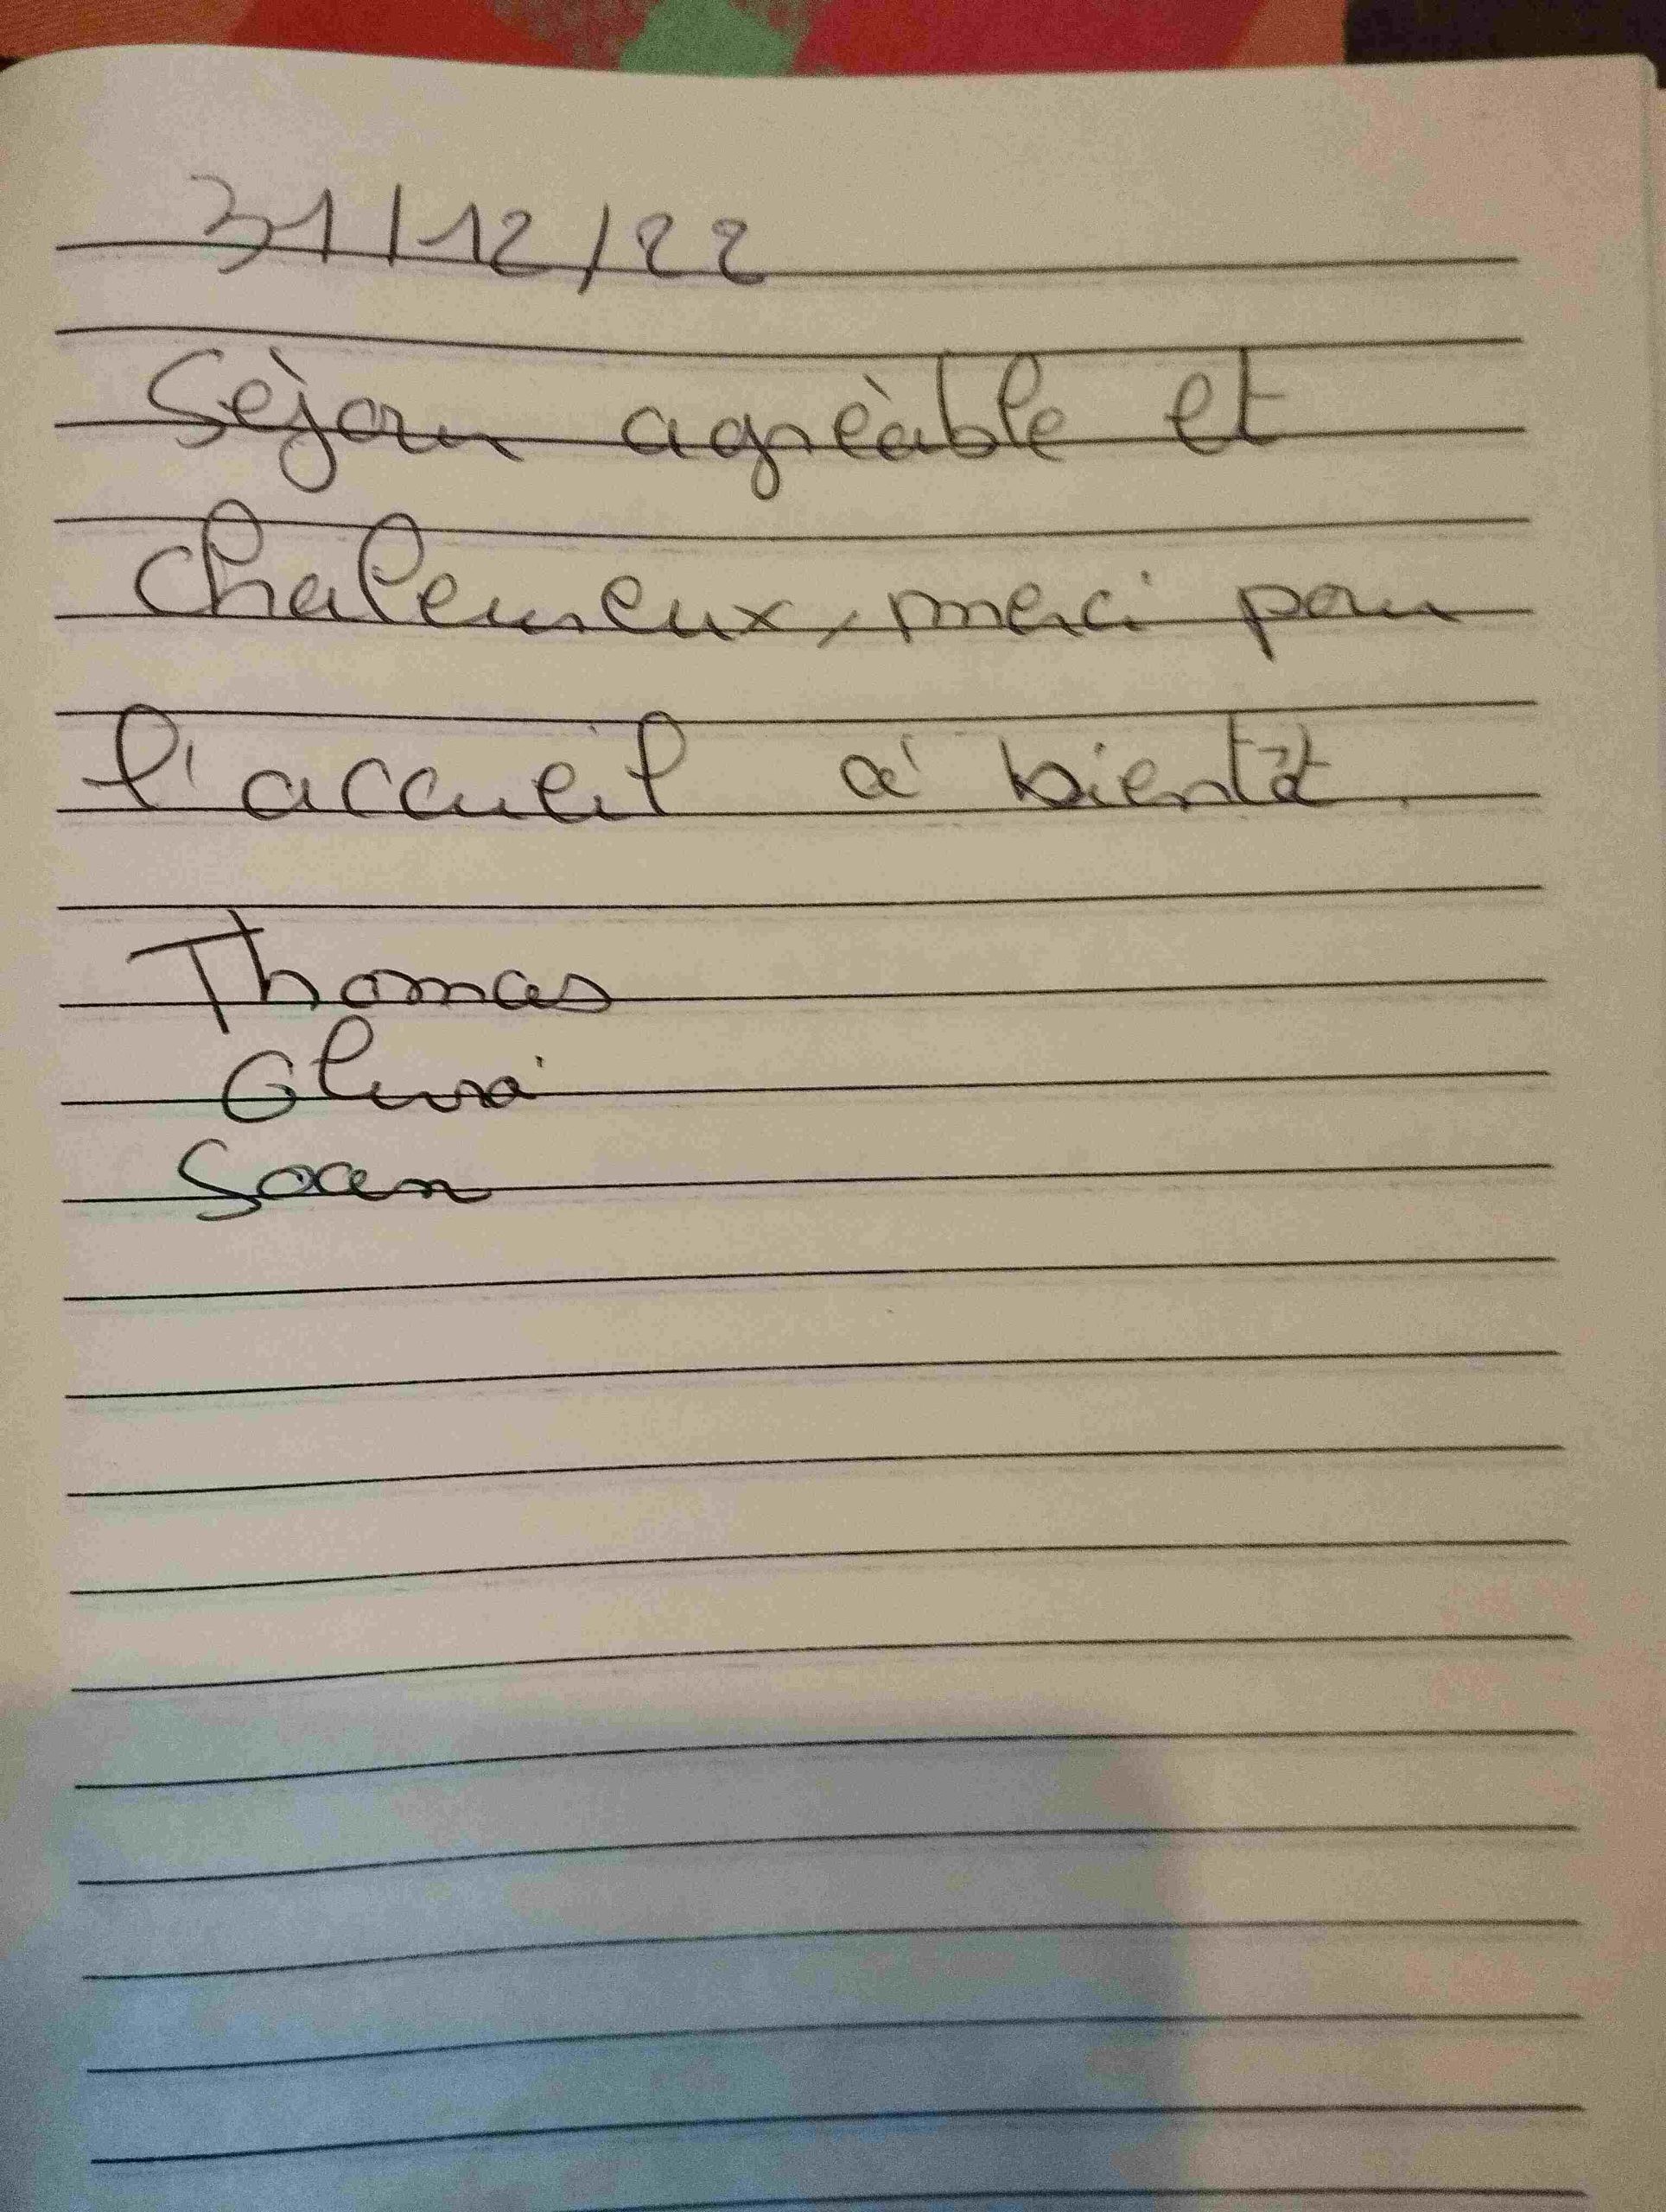 31/12/22
Séjour agréable et
chaleureux, merci pour
l'accueil à bientôt.
Thomas
Soan